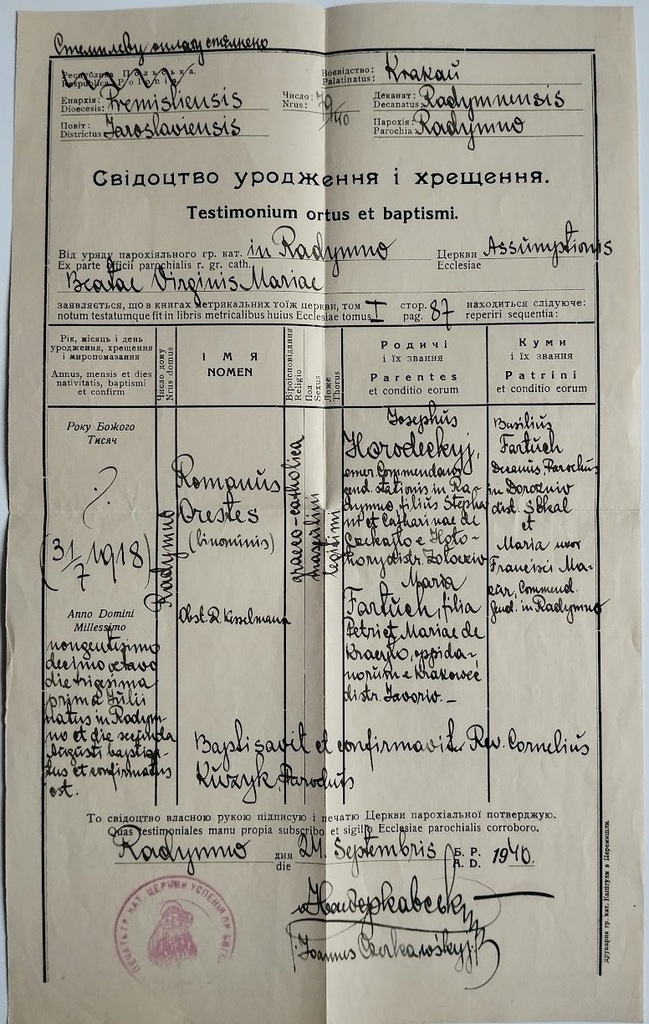 Стемплеву оплату сповнено
Республіка Польська.
Respublica Poloniae
Воєвідство:
Palatinatus: Krakau
Епархія:
Dioecesis: Premisliensis
Число:
Nrus: 79/40
Деканат:
Decanatus Radymnensis
Повіт:
Districtus Jaroslaviensis
Парохія:
Parochia Radymno
Свідоцтво уродження і хрещення.
Testimonium ortus et baptismi.
Від уряду парохіяльного гр. кат. in Radymno Церкви Assumptionis
Ex parte Officii parochialis r. gr. cath. Ecclesiae
Beatae Virginis Mariae
заявляється, що в книгах метрикальних тоїж церкви, том I стор. 87 находиться слідуюче:
notum testatumque fit in libris metricalibus huius Ecclesiae tomus pag. reperiri sequentia:
Рік, місяць і день
уродження, хрещення
і миропомазання
Annus, mensis et dies
nativitatis, baptismi
et confirm
Число дому
Nrus domus
ІМЯ
NOMEN
Віроісповідання
Religio
Пол
Sexus
Ложе
Thorus
Родичі
і їх звання
Parentes
et conditio eorum
Куми
і їх звання
Patrini
et conditio eorum
Року Божого
Тисяч
(31/7 1918)
Anno Domini
Millessimo
nongentisimo
decimo octavo
die trigesima
prima Julii
natus in Radym-
no et die secunda
Augusti baptiza-
tus et confirmatus
est.
Radymno
Romanus
Orestes
(binominis)
Obst. R. Kisselmana
graeco-catholica
masculini
legitimi
Josephus
Horodeckyj,
emer. Commendans
gend. stationis in Ra-
dymno, filius Stepha
ni et Catharinae de
Czekajło e Hoło-
hory distr. Zołocziw
Maria
Fartuch, filia
Petri et Mariae de
oppida-
norum e Krakoweć
distr. Javoriv. —
Basilius
Fartuch
Decanus, Parochus
in
dist. Sokal
et
Maria uxor
Francisci Ma-
Commend.
gend. in Radymno
Baptisavit et confirmavit Rev. Cornelius
Parochus
То свідоцтво власною рукою підписую і печатю Церкви парохіальної потверджую.
Quas testimoniales manu propia subscribo et sigillo Ecclesiae parochialis corroboro.
Radymno дня
die 24. Septembris Б. Р.
A. D. 1940.
ПЕЧАТЬ ГР. КАТ. ЦЕРКВИ УСПЕНІЯ ПР. БОГО.
Joannus Czerkawśkyj
Друкарня гр. кат. Капітули в Перемишлі.